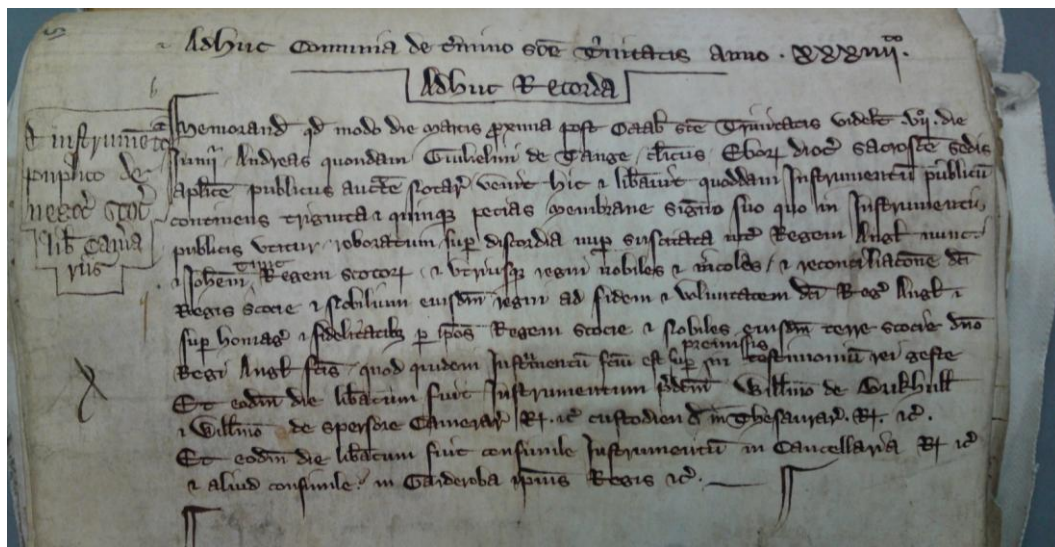 Adhuc Comunia de t'mino sc̄e T'nitatis anno . xxxiiijto.
Adhuc Recorda
D' instrumēto
puplico de
negoc' scoc'
lib' cam'a
riis
Memorand' qd' modo die martis p'xima post Octab' sc̄e Trinitatis videlt' .vij. die
Junij . Andreas quondam Guilielmi de Tange . cl'icus Ebor' dioc' sacros̄ce sedis
ap'lice publicus auct'te Notar' venit hic & lib'auit quoddam Instrumentū publicū
continens triginta & quinq; pecias membrane signo suo quo in Instrumentis
publicis vtitur . roboratum sup' discordia nup' suscitata int' Regem Angl' nunc
& Joh'em tunc Regem scotor' . & vtriusq; regni nobiles & incolas / & reconciliac̄one d'c̄i
Regis scocie & Nobilium eiusd'm regni ad fidem & voluntatem d'c̄i Reg' Angl' &
sup' homag' & fidelitatib; p' ip̄os Regem scocie & Nobiles eiusd'm terre scocie d'no
Regi Angl' fc̄is . quod quidem Inst'mentū fc̄m est sup' p'remissis in testimoniū rei geste
Et eod'm die lib'atum fuit Instrumentum p'dc̄m Will'mo de Brikhull'
& Will'mo de Spersore Camerar' R'. &c' custodiend' in Thesaurar'. R'. &c'.
Et eod'm die lib'atum fuit consimile Instrumentū in Cancellaria R' &c'
& aliud consimile . in Garderoba ip̄ius Regis &c'.